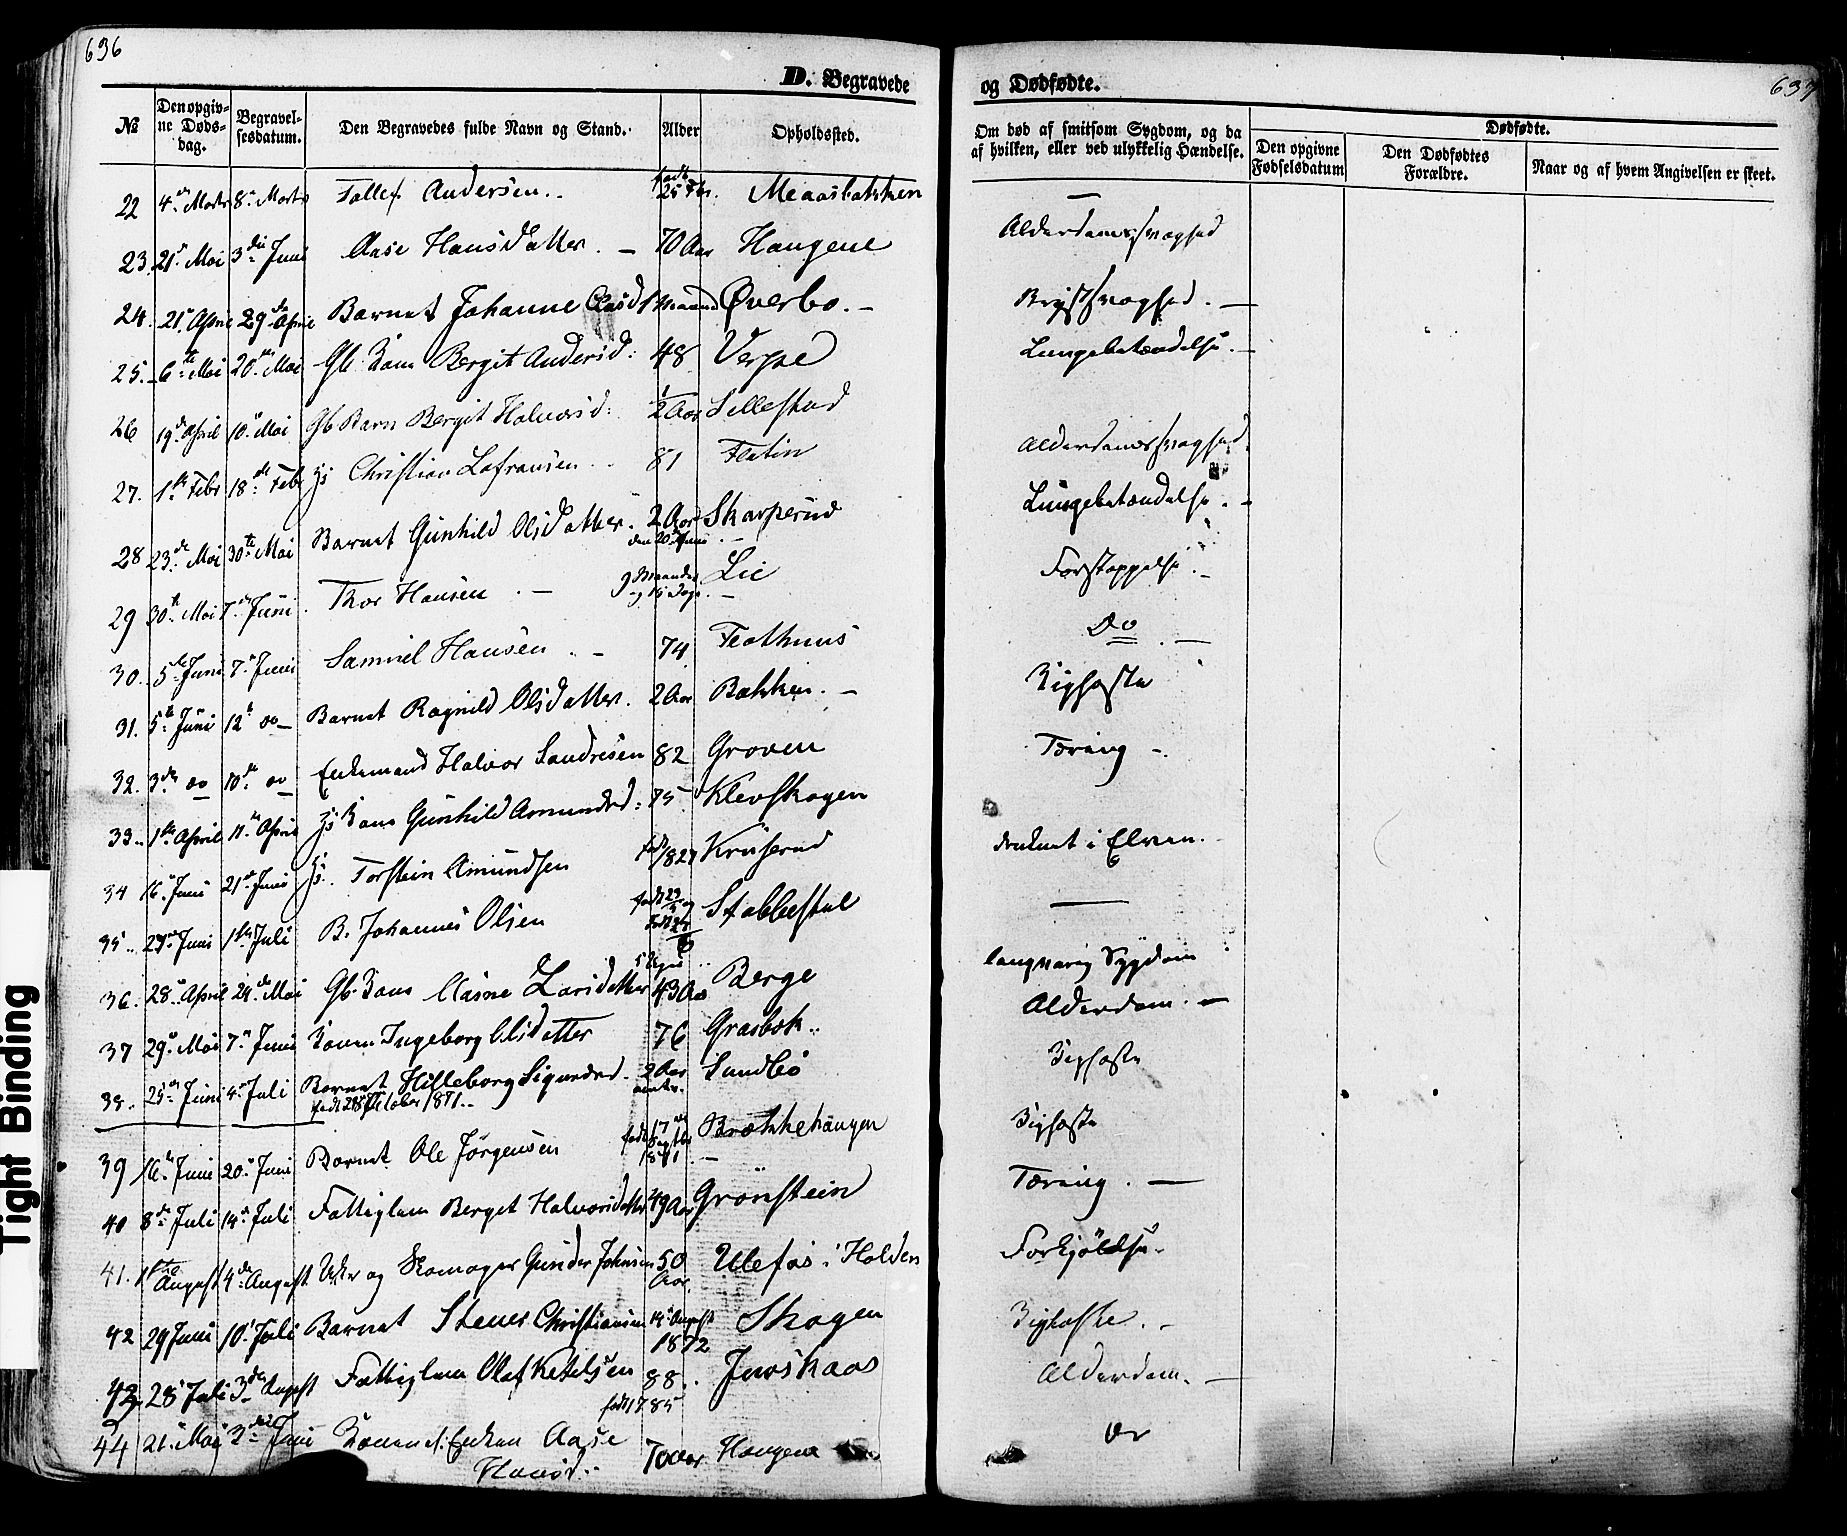 636
D. Begravede
og Dødfødte.
637
№
Den opgivne Døds-dag.
Begravelsesdatum.
Den Begravedes fulde Navn og Stand.
Alder
Opholdssted.
Om død af smitsom Sygdom, og da af hvilken, eller ved ulykkelig Hændelse.
Dødfødte.
Den opgivne Fødselsdatum
Den Dødfødtes Forældre.
Naar og af hvem Angivelsen er skeet.
22 4 Marts 8 Marts Tollef Andersen 25 Febr. —
23. 21 Mai 3die Juni Aase Hansdatter. — 70 Aar Haugene Alderdomssvaghed
24. 21 April 29de April Barnet Johanne Clasd 1 Maaned Øverbo. — Brystsvaghed. —
25. 6te Mai 20 Mai Gb. Kone Bergit Andersd: 48 Verpe Lungebetændelse. —
26 19de April 10 Mai Gb Barn Bergit Halvorsd: 1/2 Aar Sillestad
27. 1ste Febr 18de Febr Christian Lafransen 81 Flatin Alderdomssvaghed
28 23de Mai 30te Mai Barnet Gunhild Olsdatter. 2 Aar Skarperud Lungebetændelse. —
29 30te Mai 7de Juni Thor Hansen. — 9 Maaneder og Dage Lie Forstoppelse. —
30. 5te Juni 7 Juni Samuel Hansen. — 74 Flathuus Do. —
31. 5te Juni 12te do Barnet Ragnild Olsdatter. 2 Aar Bakken. — Kighoste
32. 3die do 10de do Enkemand Halvor Sandresen 82 Groven Tæring —
33. 1ste April 11te April Kone Gunhild Amundsd: 75 Klevskogen
34 16 Juni 21de Juni Torstein Amundsen født 1827 Kruserud druknet i Elven.
35. 27de Juni 1ste Juli B. Johannes Olsen Stabbestul —
36. 28 April 24de Mai Gb. Kone Larsdatter 43 Aar Berge langvarig Sygdom
37 29 Mai 7de Juni Konen Ingeborg Olsdatter 76 Grasbek Alderdom. —
38. 25de Juni 4de Juli Barnet Hilleborg Sigurdsd. 2 Aar Sundbö Kighoste
født 28 Oktober 1871.
39 16de Juni 20 Juni Barnet Ole Jørgensen født 17 Septbr 1871 Brækkehaugen Kighoste
40 8de Juli 14de Juli Fattiglem Berget Halvorsdatter 49 Aar Grønstein Tæring. —
41. 1ste August 4de August og Skomager Gunder Johnsen 50 Aar Ulefos i Holden Forkjölelse.
42 29 Juni 10 Juli Barnet Stener Christiansen 14 August 1872 Skogen Kighoste. —
43 28 Juli 3die August Fattiglem Olaf Ketelsen 88. født 1785 Juvskaas Alderdom. —
44 21 Mai 3die Juni Konen Enken Aase Hansd. 70 Aar Haugene do
Tight Binding